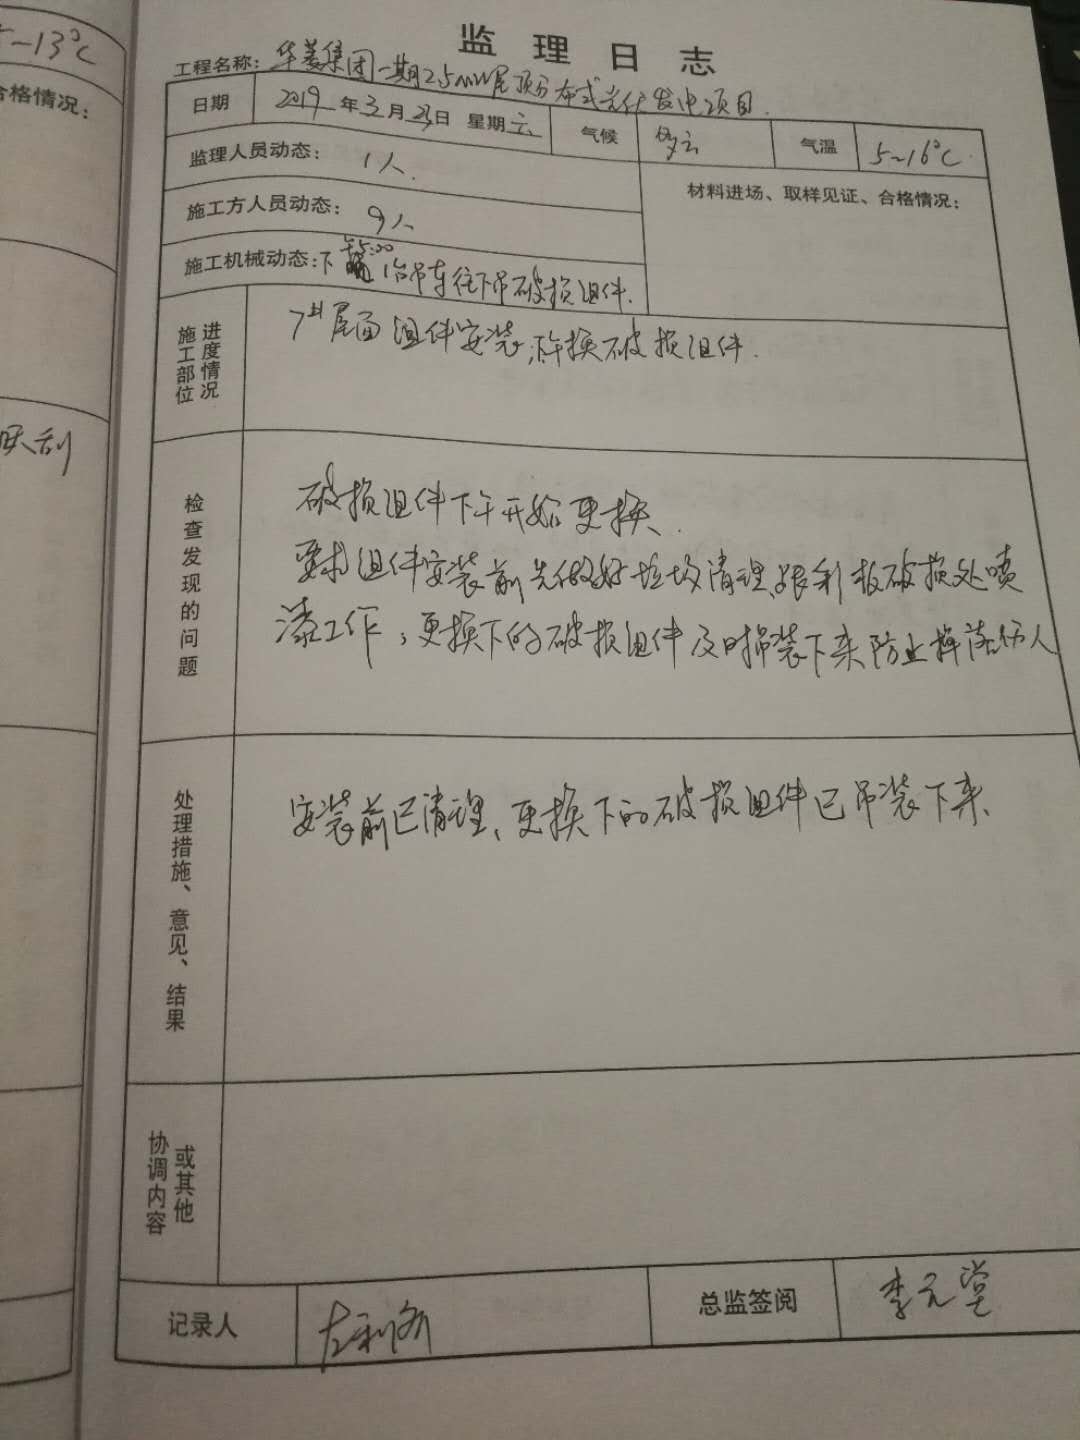 5~13℃
合格情况：
监理日志
工程名称：华菱集团一期25MW屋顶分布式光伏发电项目.
日期 2019年3月23日 星期六 气候 多云 气温 5~16℃
监理人员动态： 1人.
材料进场、取样见证、合格情况：
施工方人员动态： 9人
施工机械动态：下午5:00 1台吊车往下吊破损组件.
施工部位 进度情况 7#屋面组件安装,拆换破损组件.
检查发现的问题
破损组件下午开始更换.
要求组件安装前先做好垃圾清理、
板破损处喷
漆工作，更换下的破损组件及时吊装下来防止掉落伤人
处理措施、意见、结果
安装前已清理、更换下的破损组件已吊装下来.
协调内容 或其他
记录人 总监签阅 李元堂